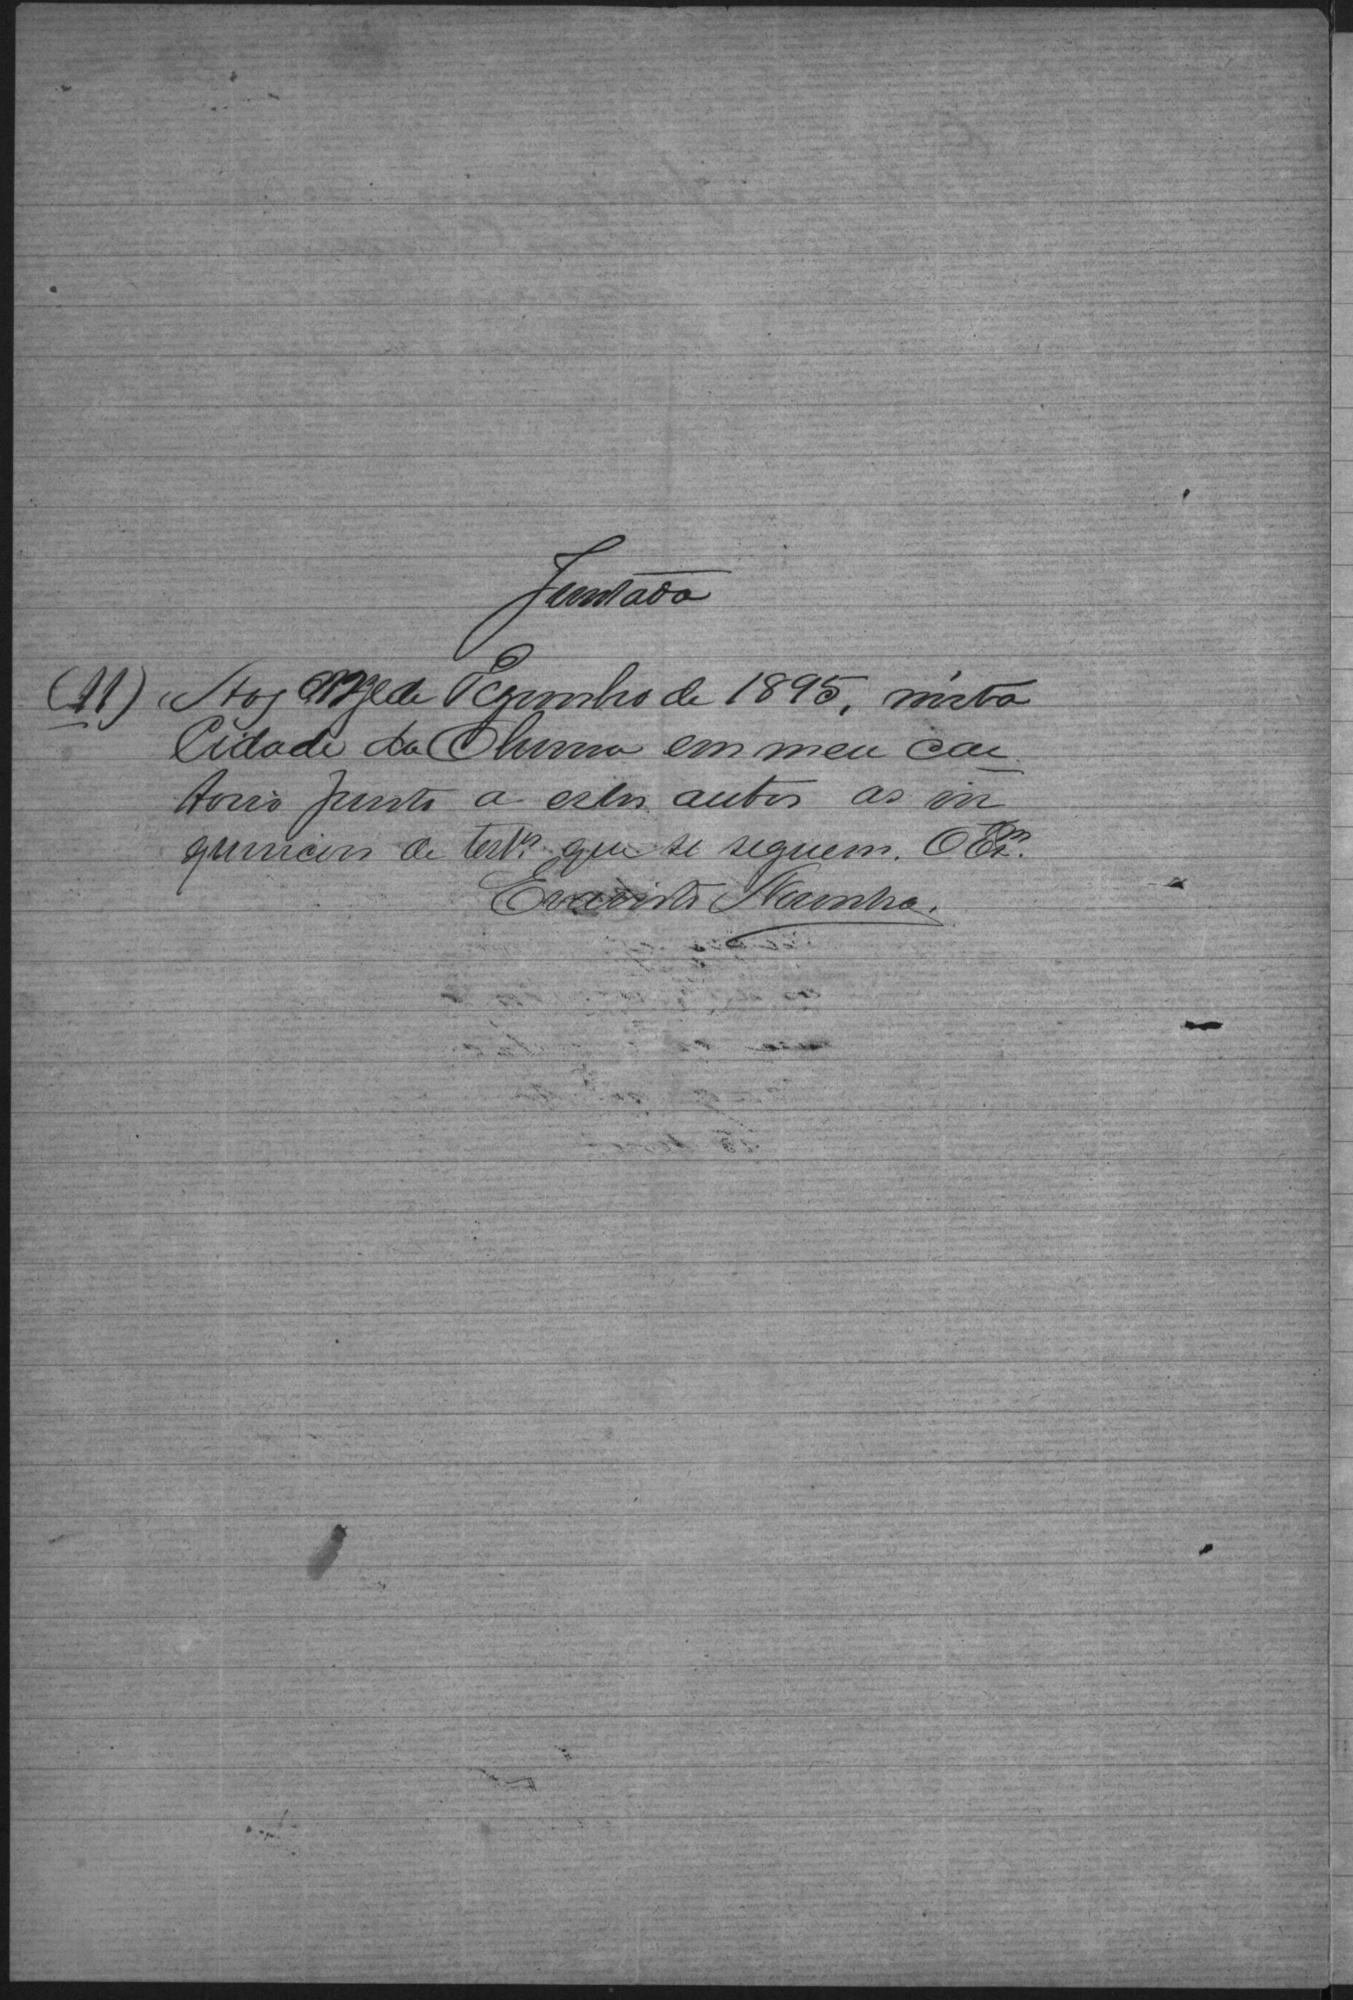 Juntada
(11) Aos onze de Dezembro de 1895, nesta
Cidade da em meu car
torio junto a estes autos as in
quiricões de testas que se seguem. O Esm.
Evaristo